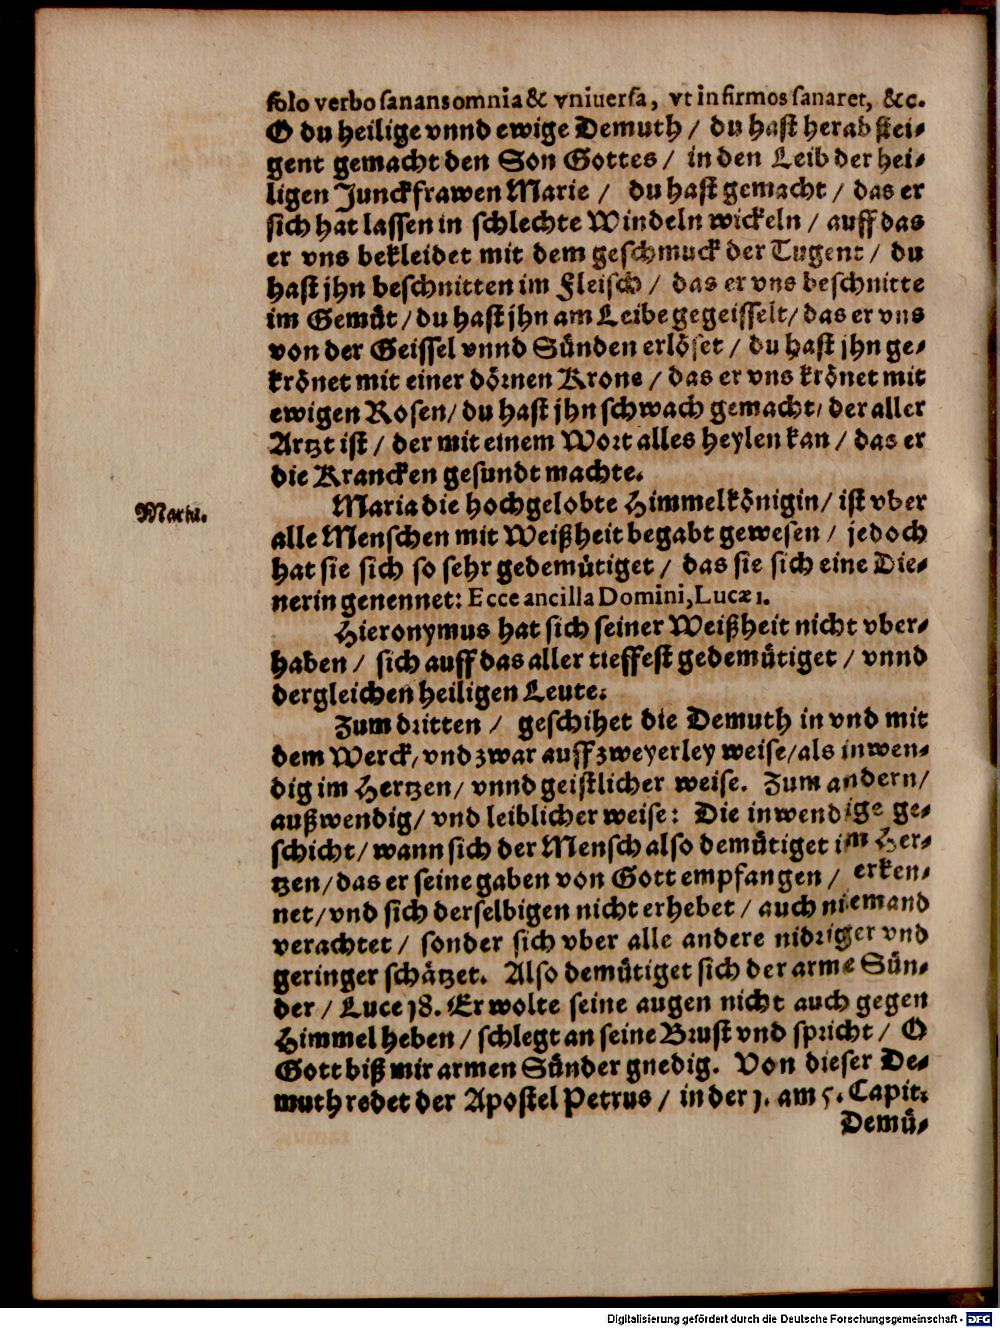 solo verbo sanans omnia & vniuersa, vt infirmos sanaret, &c.
O du heilige vnnd ewige Demuth / du hast herab stei⸗
gent gemacht den Son Gottes / in den Leib der hei⸗
ligen Junckfrawen Marie / du hast gemacht / das er
sich hat lassen in schlechte Windeln wickeln / auff das
er vns bekleidet mit dem geschmuck der Tugent / du
hast jhn beschnitten im Fleisch / das er vns beschnitte
im Gemůt / du hast jhn am Leibe gegeisselt / das er vns
von der Geissel vnnd Sůnden erlöset / du hast jhn ge⸗
krönet mit einer dörnen Krone / das er vns krönet mit
ewigen Rosen / du hast jhn schwach gemacht / der aller
Artzt ist / der mit einem Wort alles heylen kan / das er
die Krancken gesundt machte.
Maria.
Maria die hochgelobte Himmelkönigin / ist vber
alle Menschen mit Weißheit begabt gewesen / jedoch
hat sie sich so sehr gedemůtiget / das sie sich eine Die⸗
nerin genennet: Ecce ancilla Domini, Lucæ 1.
Hieronymus hat sich seiner Weißheit nicht vber⸗
haben / sich auff das aller tieffest gedemůtiget / vnnd
dergleichen heiligen Leute.
Zum dritten / geschihet die Demuth in vnd mit
dem Werck / vnd zwar auff zweyerley weise / als inwen⸗
dig im Hertzen / vnnd geistlicher weise. Zum andern /
außwendig / vnd leiblicher weise: Die inwendige ge⸗
schicht / wann sich der Mensch also demůtiget im Her⸗
tzen / das er seine gaben von Gott empfangen / erken⸗
net / vnd sich derselbigen nicht erhebet / auch niemand
verachtet / sonder sich vber alle andere nidriger vnd
geringer schätzet. Also demůtiget sich der arme Sůn⸗
der / Luce 18. Er wolte seine augen nicht auch gegen
Himmel heben / schlegt an seine Brust vnd spricht / O
Gott biß mir armen Sůnder gnedig. Von dieser De⸗
muth redet der Apostel Petrus / in der 1. am 5. Capit.
Demů⸗
Digitalisierung gefördert durch die Deutsche Forschungsgemeinschaft - DFG